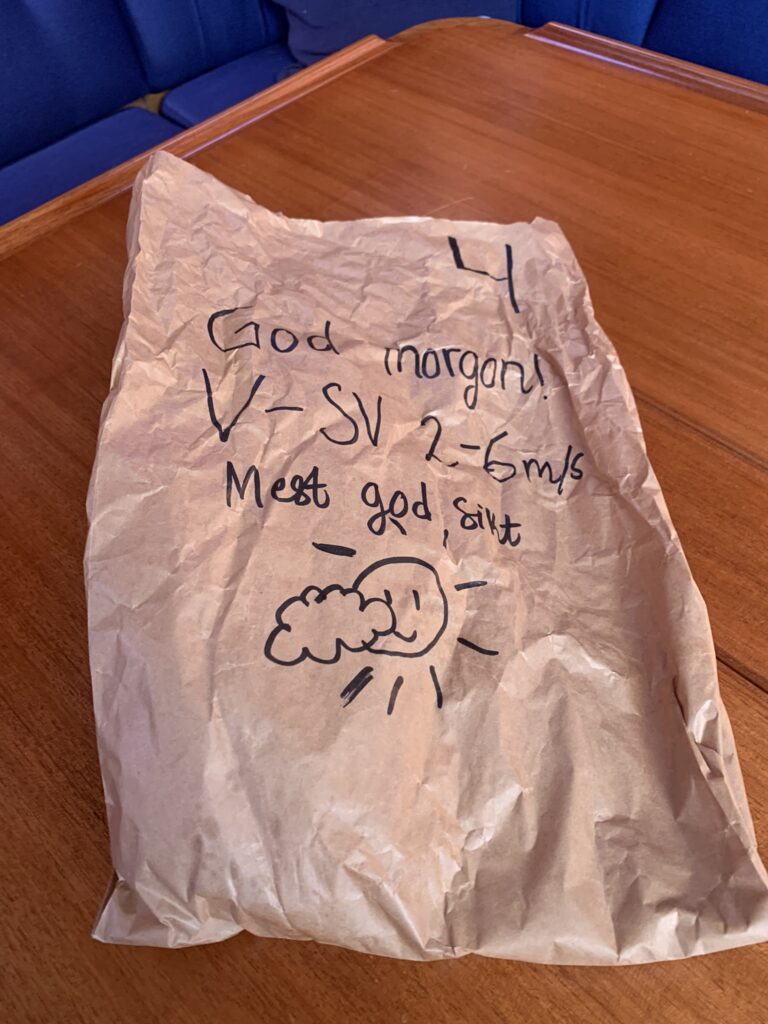 4
God morgon!
V-SV 2-6m/s
Mest god sikt